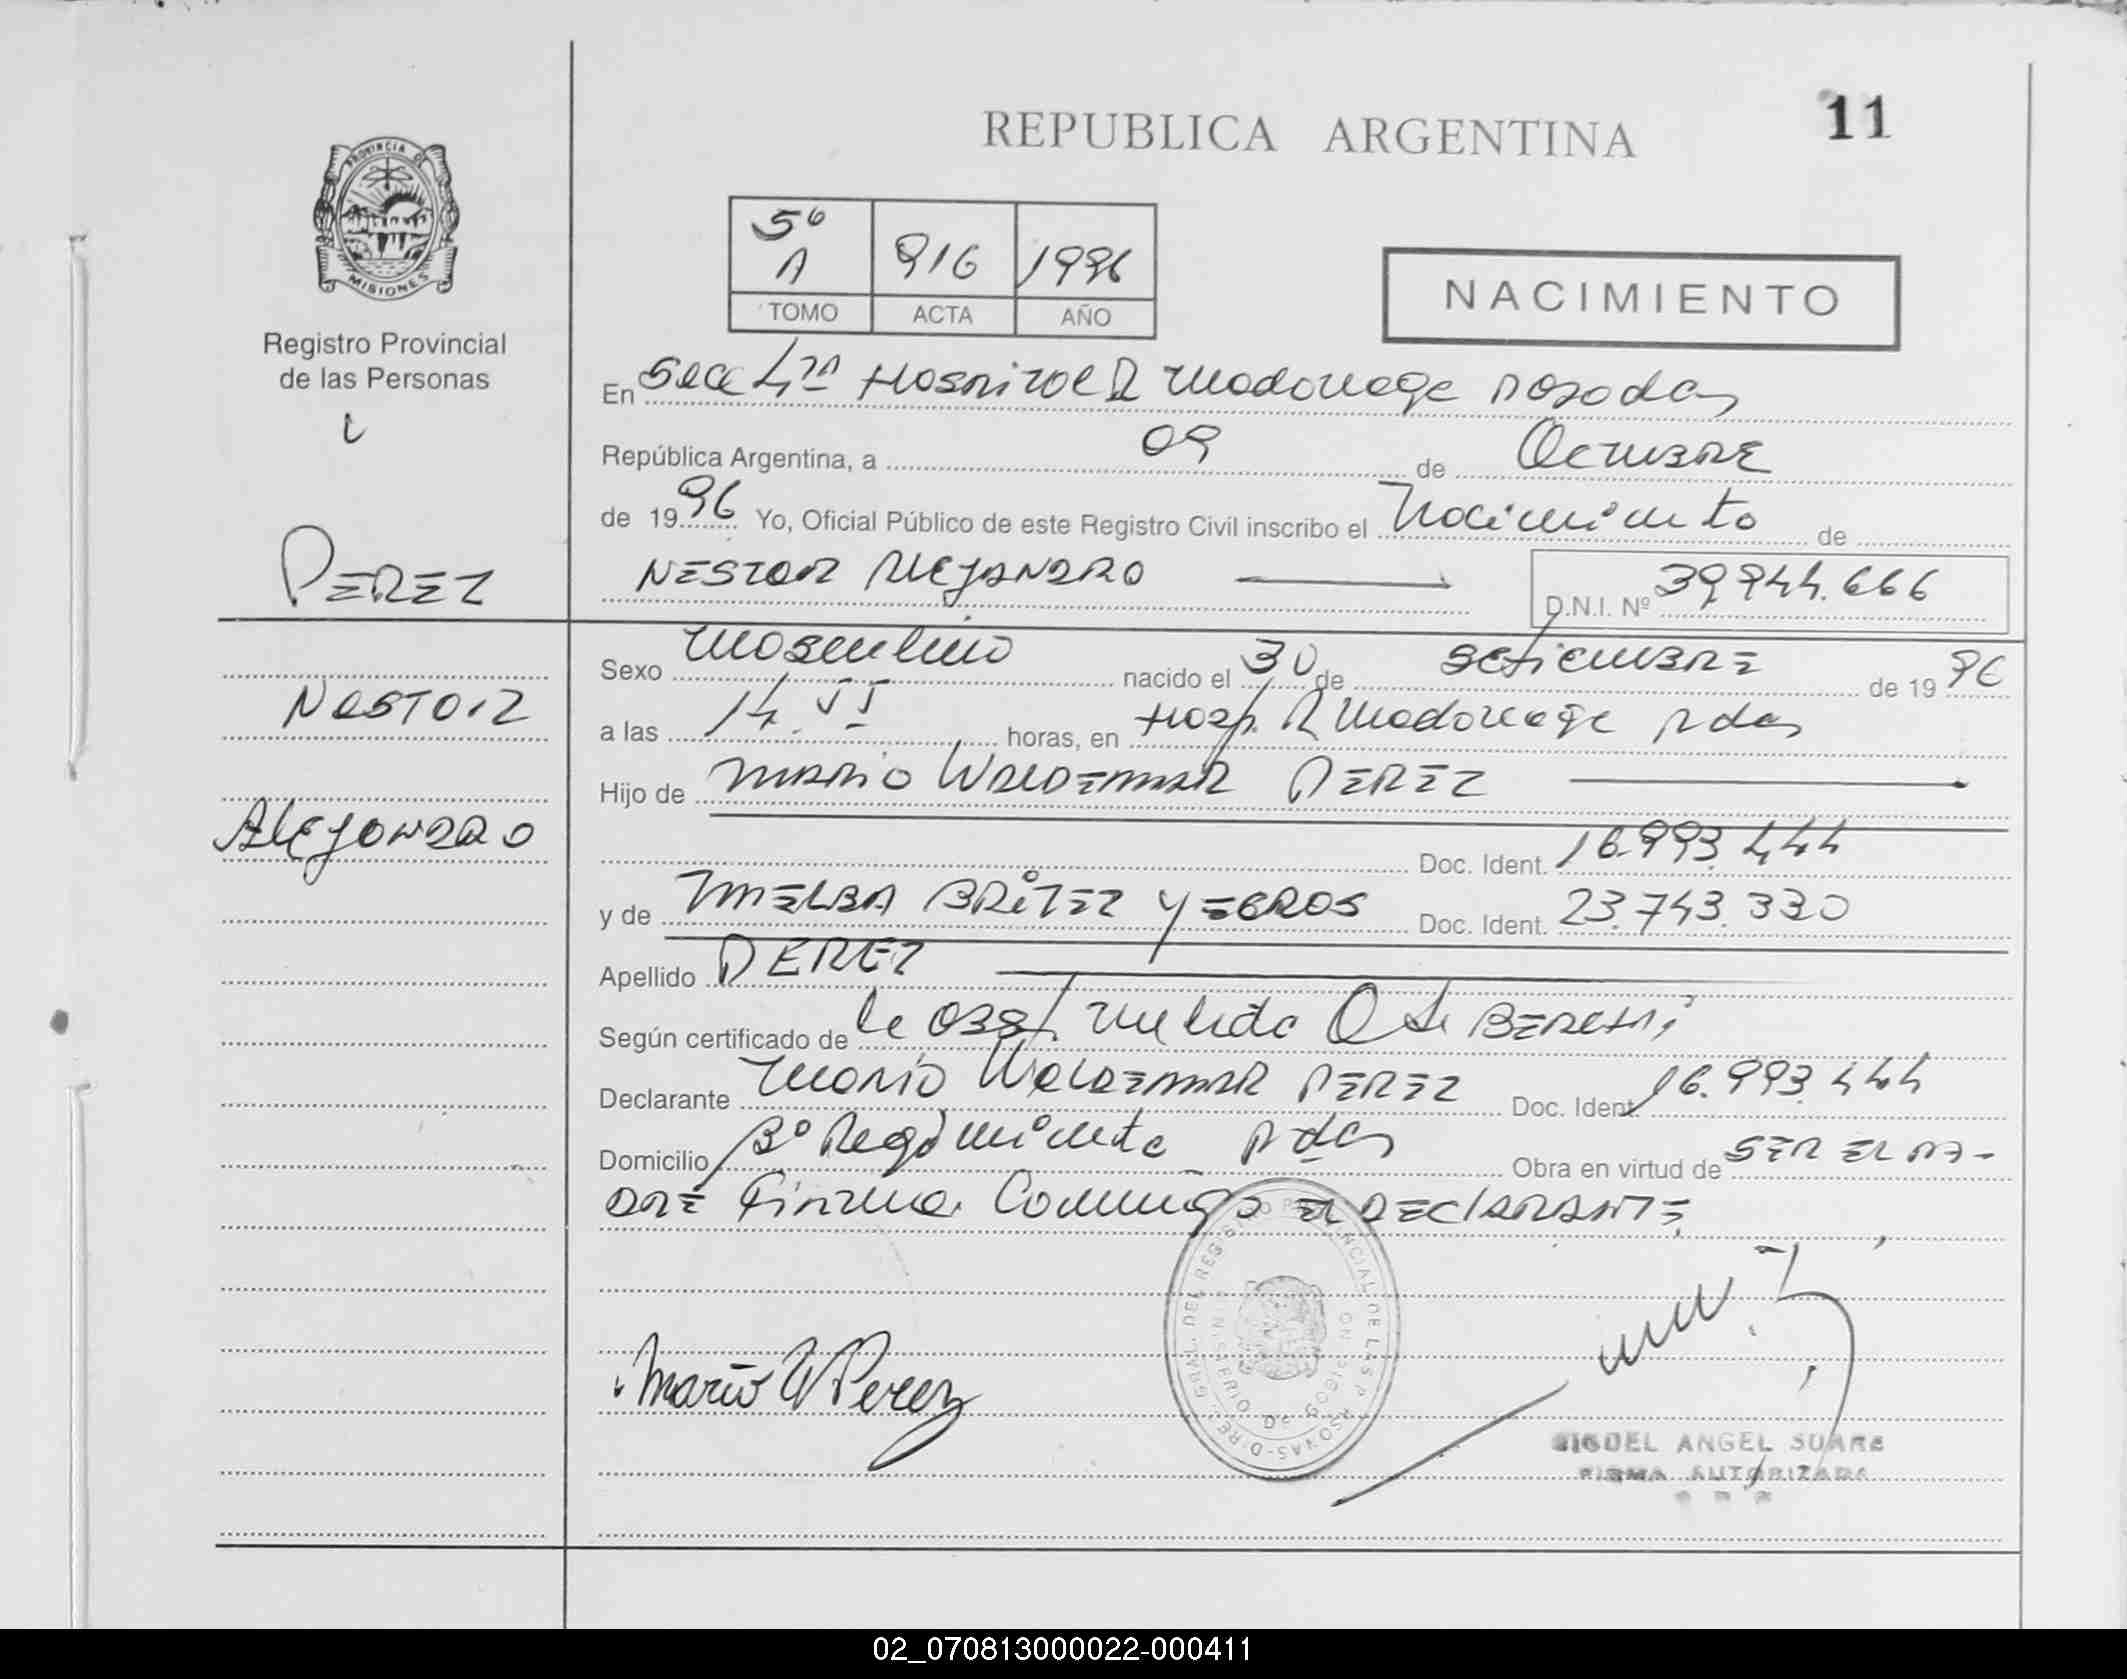 REPUBLICA ARGENTINA
11
PROVINCIA DE MISIONES
Registro Provincial
de las Personas
5º A 916 1996
TOMO ACTA AÑO
NACIMIENTO
En Secc 4ta Hospital R Madariaga Posadas
República Argentina, a 09 de Octubre
de 1996 Yo, Oficial Público de este Registro Civil inscribo el Nacimiento de
PEREZ
NESTOR ALEJANDRO
D.N.I. Nº 39.944.666
Sexo Masculino nacido el 30 de Setiembre de 1996
NESTOR
a las 14. horas, en Hosp. R Madariaga Pdas
Hijo de MARIO WALDEMAR PEREZ
ALEJANDRO
Doc. Ident. 16.993.444
y de IMELBA BRITEZ YEGROS Doc. Ident. 23.743.330
Apellido PEREZ
Según certificado de la Obst.
Declarante MARIO WALDEMAR PEREZ Doc. Ident. 16.993.444
Domicilio Bº Regimiento Pdas Obra en virtud de SER EL PA-
DRE Firma Conmigo EL DECLARANTE
DIREC. GRAL. DEL REGISTRO PROVINCIAL DE LAS PERSONAS
MINISTERIO DE GOBIERNO
Mario W Perez
MIGUEL ANGEL SUARE
FIRMA AUTORIZADA
02_070813000022-000411